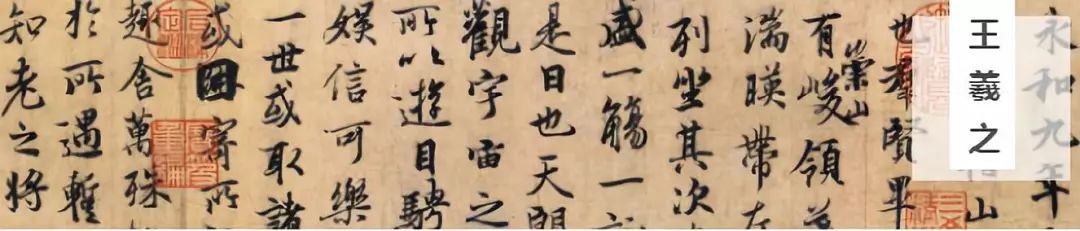 永和九年
王羲之
山
也羣賢畢
有崇山峻領
湍暎帶左
列坐其次
盛一觴一
是日也天朗
觀宇宙之
所以遊目騁
娛信可樂
一世或取諸
或因寄所
趣舍萬殊
於所遇暫
知老之將